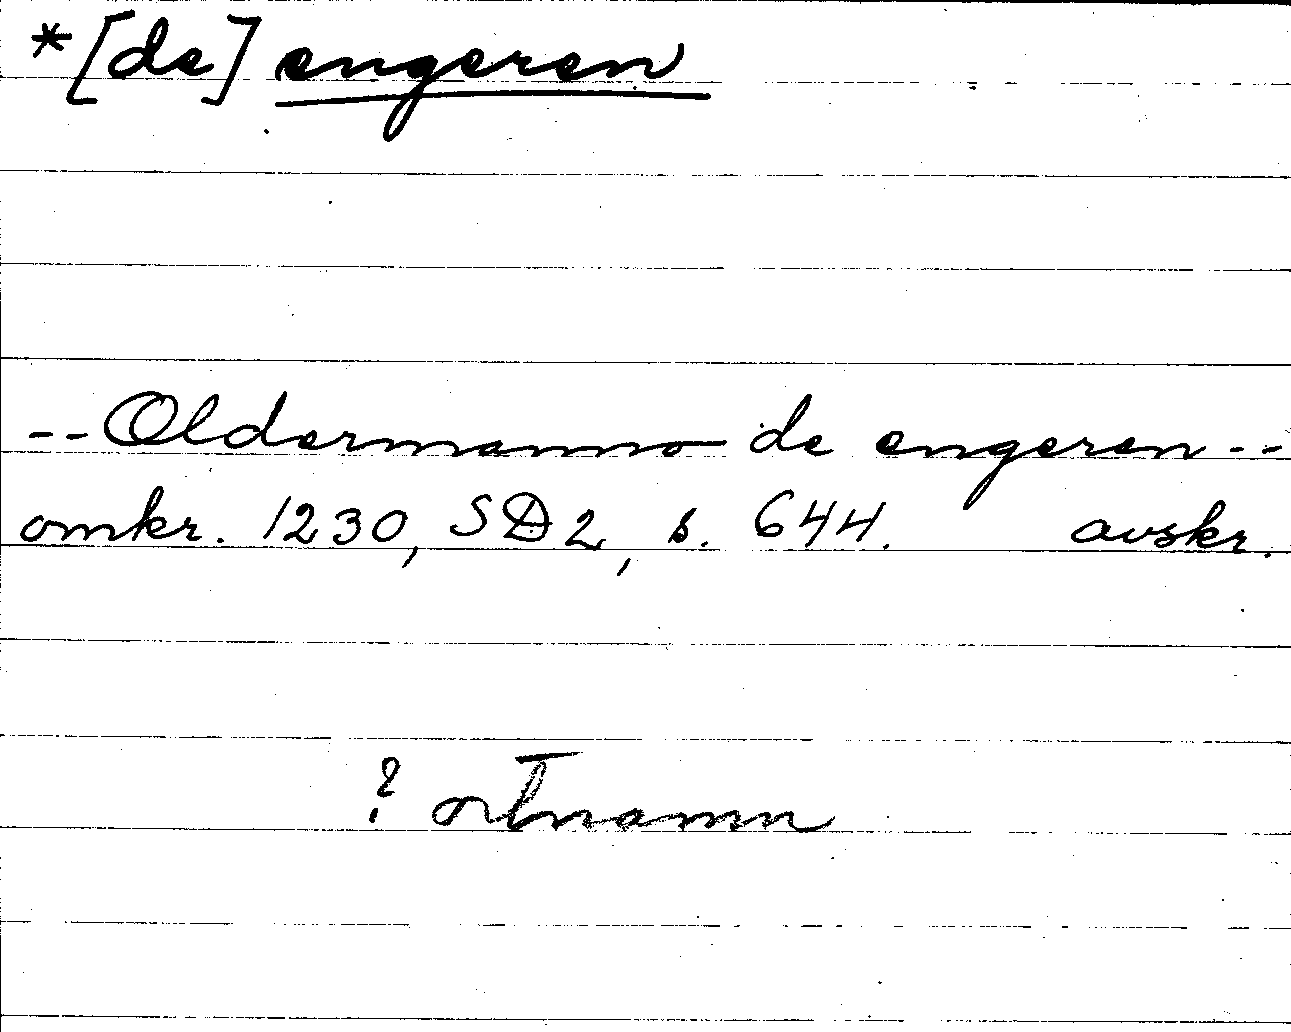 *[de] engeren
-- Oldermanno de engeren --
omkr. 1230, SD2, s. 644. avskr.
? ortnamn